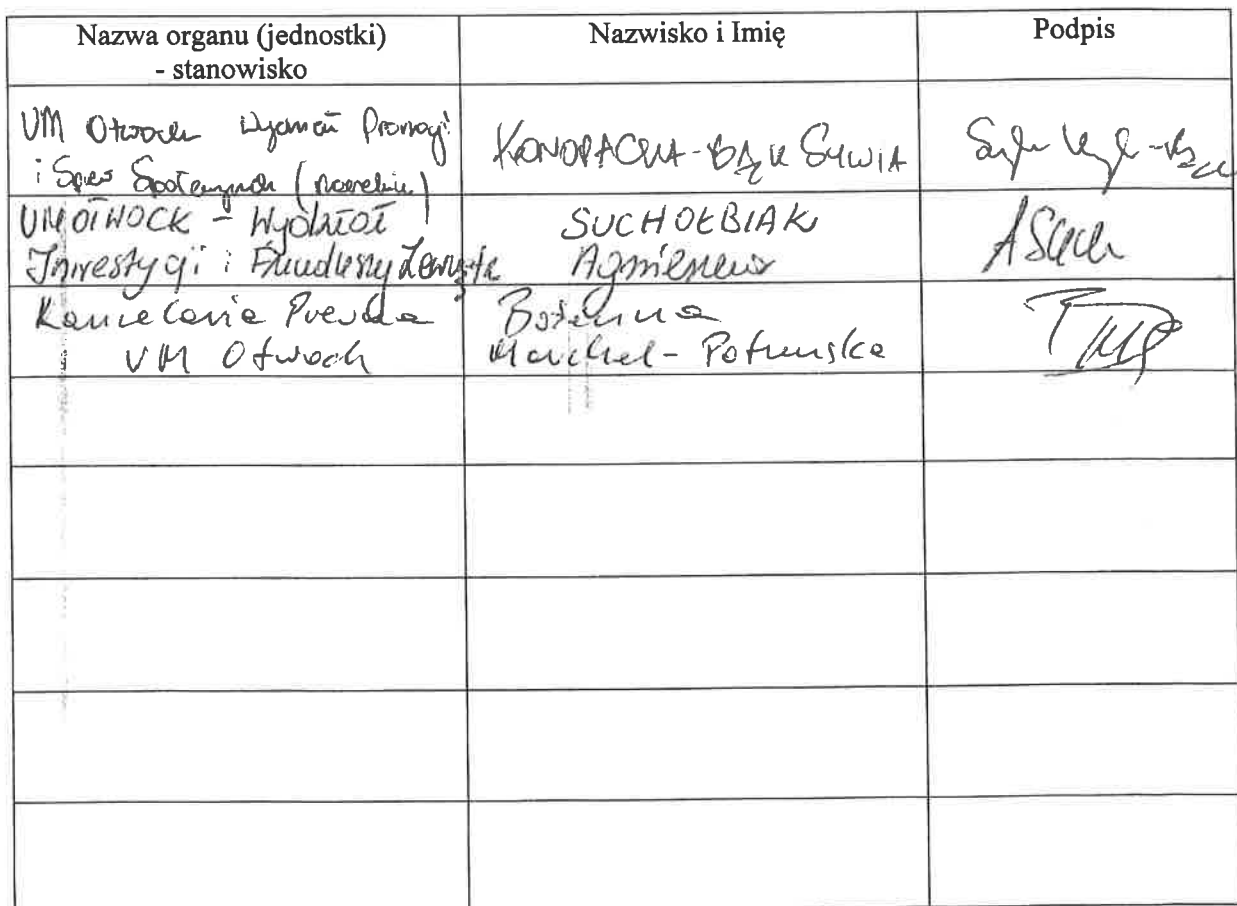 Nazwa organu (jednostki)
- stanowisko
Nazwisko i Imię
Podpis
UM Otwock Wydział Promocji
i Spraw Społecznych
KONOPACKA-BĄK SYLWIA
UM OTWOCK - Wydział
Inwestycji i Funduszy Zewn
SUCHOŁBIAK
Agnieszka
ASuch
Kancelaria Prezydenta
UM Otwock
Bożenna
Marchel-Potrunska